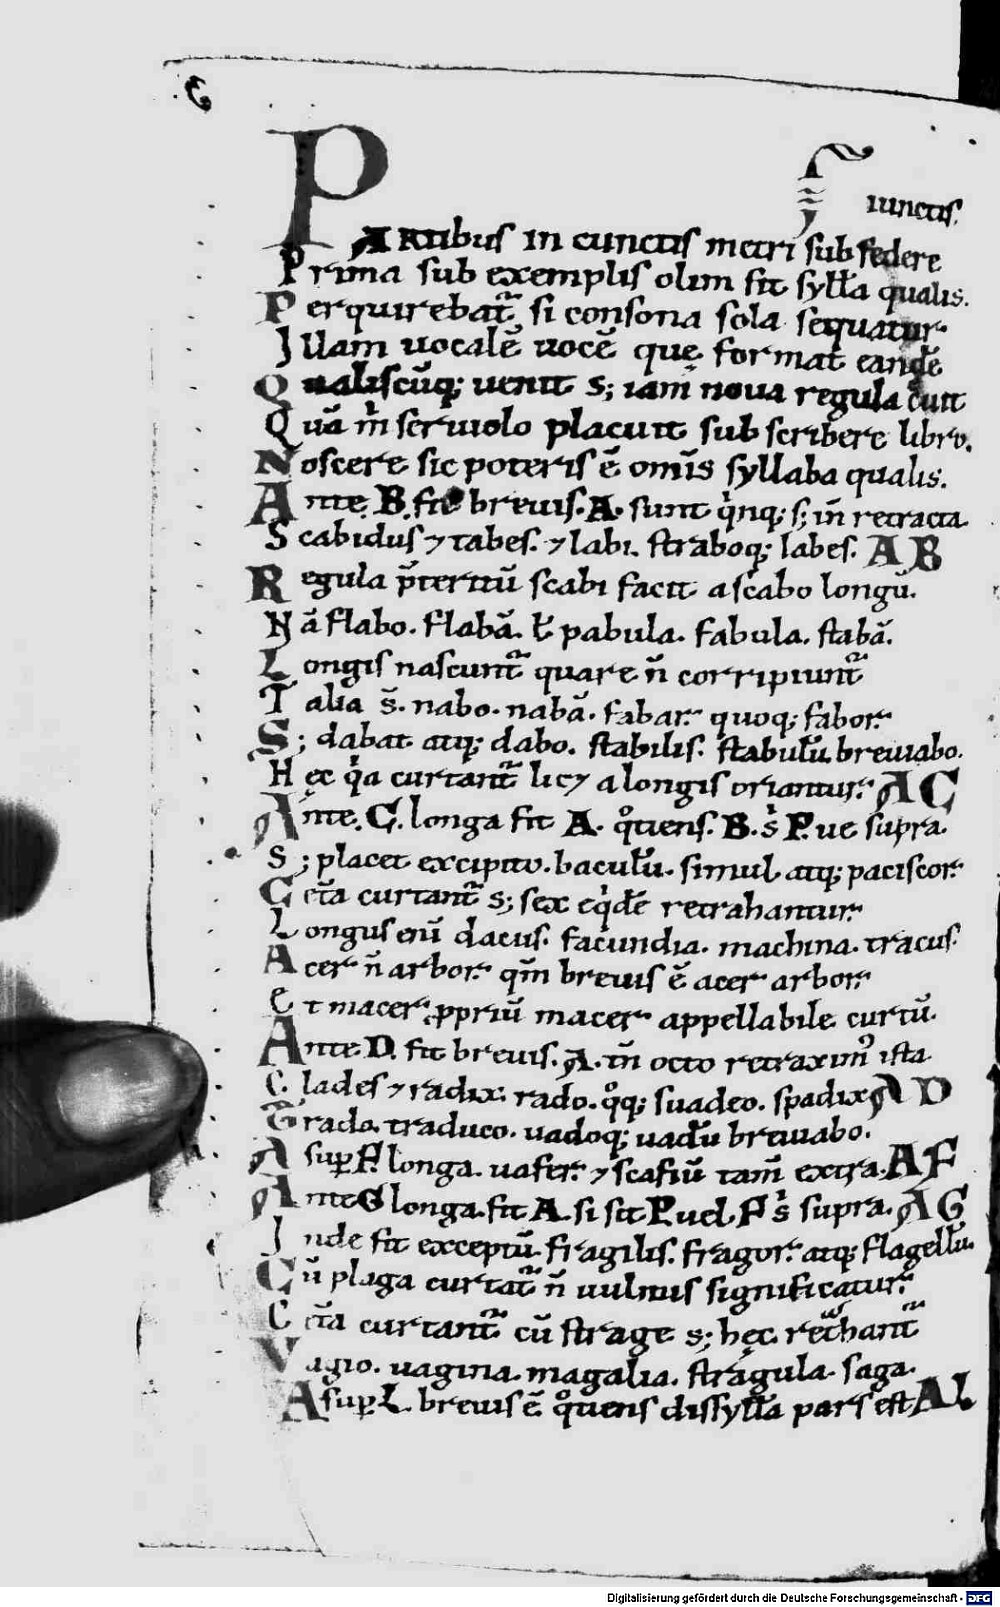 iunctis.
PARtibus in cunctis metri sub federe
Prima sub exemplis olim fit sylła qualis.
Perquirebat᷑ si consona sola sequatur
Illam uocalē uocē quę format eandē
Qualiscūq; uenit s; iam noua regula cuit
Quā m̊ seruiolo placuit sub scribere libro.
Noscere sic poteris ē omīs syllaba qualis.
Ante. B. fit breuis. A. sunt q̇nq; s; in̄ retracta
Scabidus ⁊ tabes. ⁊ labi. straboq; labes. AB
Regula p̄teritū scabi facit a scabo longū.
Nā flabo. flabā. ł pabula. fabula. stabā.
Longis nascunt᷑ quare n̄ corripiunt᷑
Talia s̄. nabo. nabā. fabar quoq; fabor
S; dabat atq; dabo. stabilis. stabulū breuiabo.
Hęc q̇a curtant᷑ lic⁊ a longis oriantur AC
Ante. C. longa fit A. q̊tiens. B. s̓ P. ue supra.
S; placet excipito. baculū. simul atq; paciscor
Cet̄a curtant᷑ s; sex eq̇dē retrahantur
Longus enī dacus. facundia. machina. tracus.
Acer n̄ arbor qm̄ breuis ē acer arbor
Et macer ꝓpriū macer appellabile curtū.
Ante D. fit breuis. A. in̄ octo retraximꝰ ista
Clades ⁊ radix. rado. q̊q; suadeo. spadix AD
Trado. traduco. uadoq; uadū breuiabo.
A suꝑ F. longa. uafer ⁊ scafiū tam̄ extra. AF
Ante G longa. fit A. si sit P. uel F s̓ supra. AG
Inde fit exceptū. fragilis. fragor atq; flagellū.
Cū plaga curtat᷑ n̄ uulnus significatur
Cet̄a curtant᷑ cū strage s; hęc ret̄hant᷑
Vagio. uagina. magalia. stragula. saga.
A suꝑ L. breuis ē q̊tiens dissylła pars est AL
Digitalisierung gefördert durch die Deutsche Forschungsgemeinschaft - DFG